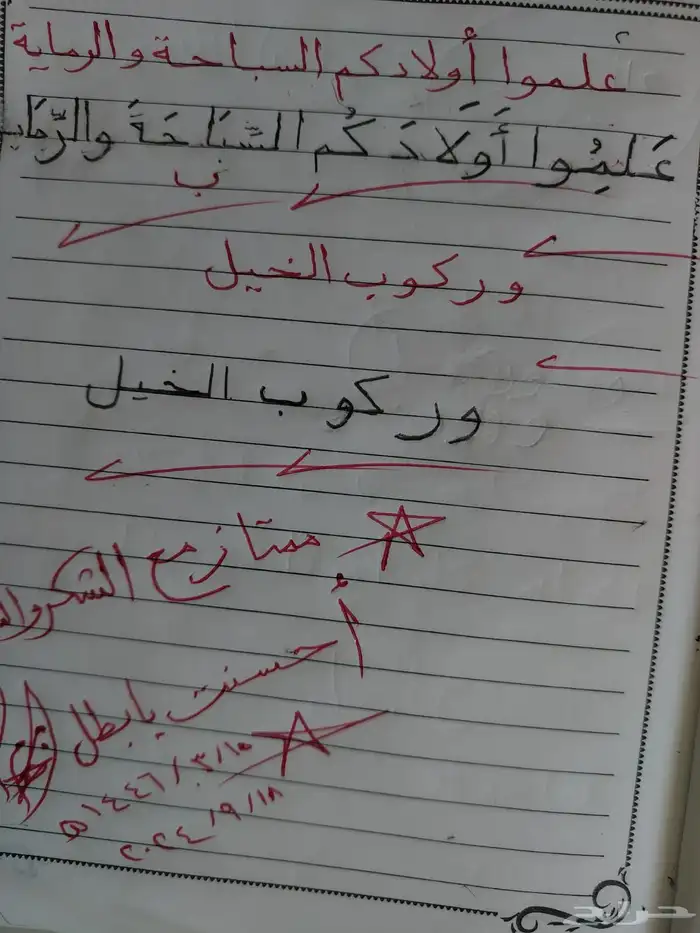 علموا أولادكم السباحة والرماية
عَلِمُوا أَوَلَادَكُم السَّبَاحَةَ والرِّمَاي
ب
وركوب الخيل
وركوب الخيل
ممتاز مع الشكر
أحسنت يا بطل
١٤٤٦/٣/١٥هـ
٢٠٢٤/٩/١٨
حراج